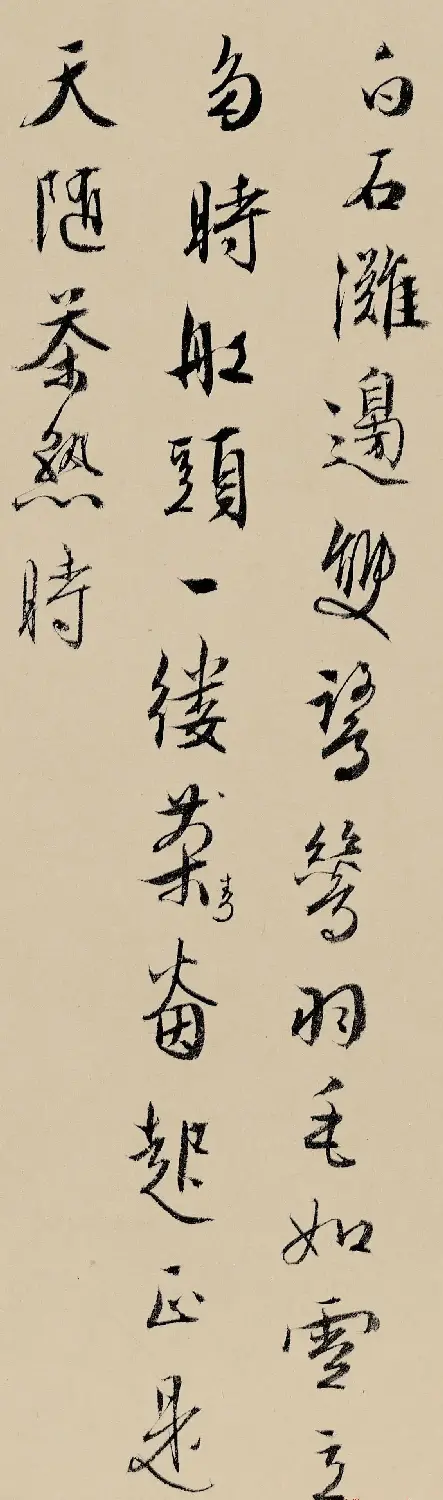 白石灘邊雙鷺鷥羽毛如雪立
多時舡頭一縷青烟起正是
天隨茶熟時